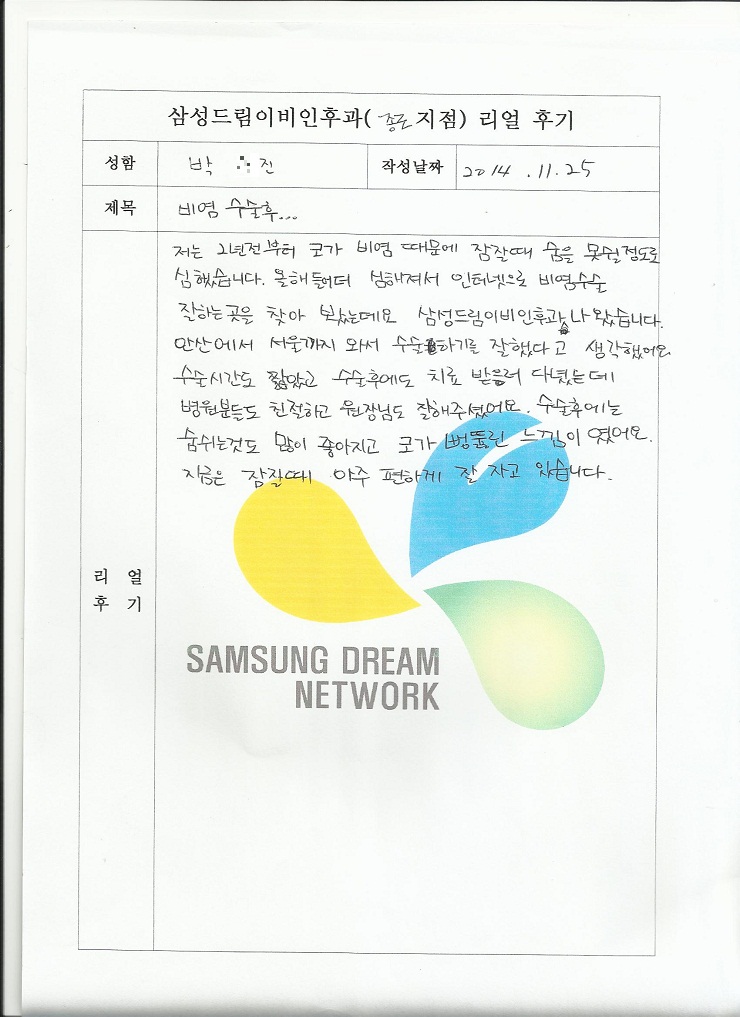 삼성드림이비인후과( 종로 지점) 리얼 후기
성함 박 진 작성날짜 2014 . 11. 25
제목 비염 수술후...
저는 2년전부터 코가 비염 때문에 잠잘때 숨을 못쉴정도로
심했습니다. 올해들어더 심해져서 인터넷으로 비염수술
잘하는곳을 찾아 보았는데요 삼성드림이비인후과 나왔습니다.
안산에서 서울까지 와서 수술하기를 잘했다고 생각했어요
수술시간도 짧았고 수술후에도 치료 받으러 다녔는데
병원분들도 친절하고 원장님도 잘해주셨어요. 수술후에는
숨쉬는것도 많이 좋아지고 코가 뻥뚫린 느낌이 였어요.
지금은 잠잘때 아주 편하게 잘 자고 있습니다.
리 얼
후 기
SAMSUNG DREAM
NETWORK